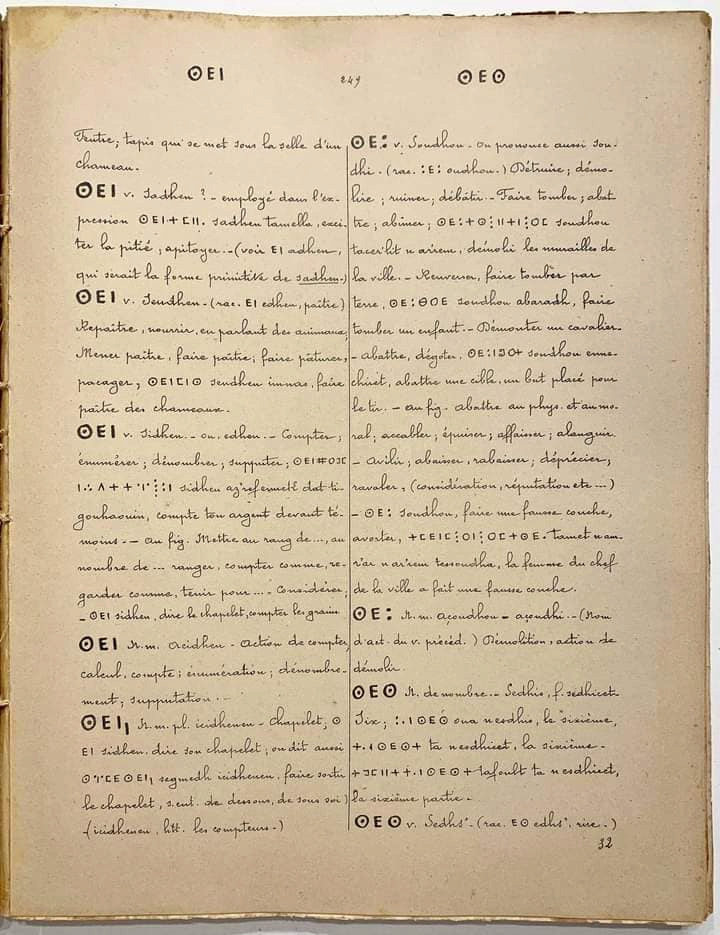 ⵙⴹⵏ
249
ⵙⴹⵙ
Feutre; tapis qui se met sous la selle d'un
chameau.
ⵙⴹⵏ v. Sadhen ? - employé dans l'ex-
pression ⵙⴹⵏⵜⵎⵍ. sadhen tamella, exci-
ter la pitié, apitoyer. - (voir ⴹⵏ adhen,
qui serait la forme primitive de sadhen.)
ⵙⴹⵏ v. Sendhen - (rac. ⴹⵏ edhen, paître)
Repaître, nourrir, en parlant des animaux;
Mener paître, faire paître; faire pâturer,
pacager; ⵙⴹⵏⵎⵏⵙ sendhen imnas, faire
paître des chameaux.
ⵙⴹⵏ v. Sidhen - ou. edhen. - Compter;
énumérer; dénombrer; supputer; ⵙⴹⵏ
sidhen az'refennek dat ti-
gouhaouin, compte ton argent devant té-
moins. - Au fig. Mettre au rang de ..., au
nombre de ... ranger, compter comme, re-
garder comme, tenir pour ... - Considérer;
- ⵙⴹⵏ sidhen, dire le chapelet, compter les grains
ⵙⴹⵏ N.m. Acidhen - Action de compter,
calcul, compte; énumération; dénombre-
ment; supputation ..
ⵙⴹⵏ, N.m. pl. icidhenen - Chapelet; ⵙ
ⴹⵏ sidhen, dire son chapelet; on dit aussi
segmedh icidhenen, faire sortir
le chapelet, s.ent. de dessous, de sous soi)
(icidhenen, litt. les compteurs.)
ⵙⴹ: v. Soudhou. On prononce aussi sou-
dhi. - (rac. :ⴹ: oudhou.) Détruire; démo-
lire; ruiner; débâtir. - Faire tomber; abat-
tre; abîmer; ⵙⴹ: soudhou
tacer'lit n ar'rem, démoli les murailles de
la ville. - Renverser, faire tomber par
terre, ⵙⴹ:ⴱⵔⴹ soudhou abaradh, faire
tomber un enfant. - Démonter un cavalier.
- Abattre, dégoter, ⵙⴹ: soudhou enne-
chiret, abattre une cible, un but placé pour
le tir. - Au fig. Abattre au phys. et au mo-
ral; accabler; épuiser; affaisser; alanguir.
- Avilir; abaisser, rabaisser; déprécier;
ravaler, (considération, réputation etc ...)
- ⵙⴹ: soudhou, faire une fausse couche,
avorter, tamet n am-
r'ar n ar'rem tessoudha, la femme du chef
de la ville a fait une fausse couche.
ⵙⴹ: N.m. açoudhou - açoudhi. - (Nom
d'act. du v. précéd.) Démolition; action de
démolir.
ⵙⴹⵙ N. de nombre. - Sedhis, f. sedhicet.
Six; :.ⵏⵙⴹⵙ oua n esdhis, le sixième,
ⵜ.ⵏⵙⴹⵙⵜ ta n esdhicet, la sixième -
ⵜⴼⵍⵜⵜ.ⵏⵙⴹⵙⵜ tafoult ta n esdhicet,
la sixième partie. -
ⵙⴹⵙ v. Sedhs". - (rac. ⴹⵙ edhs", rire. -)
32